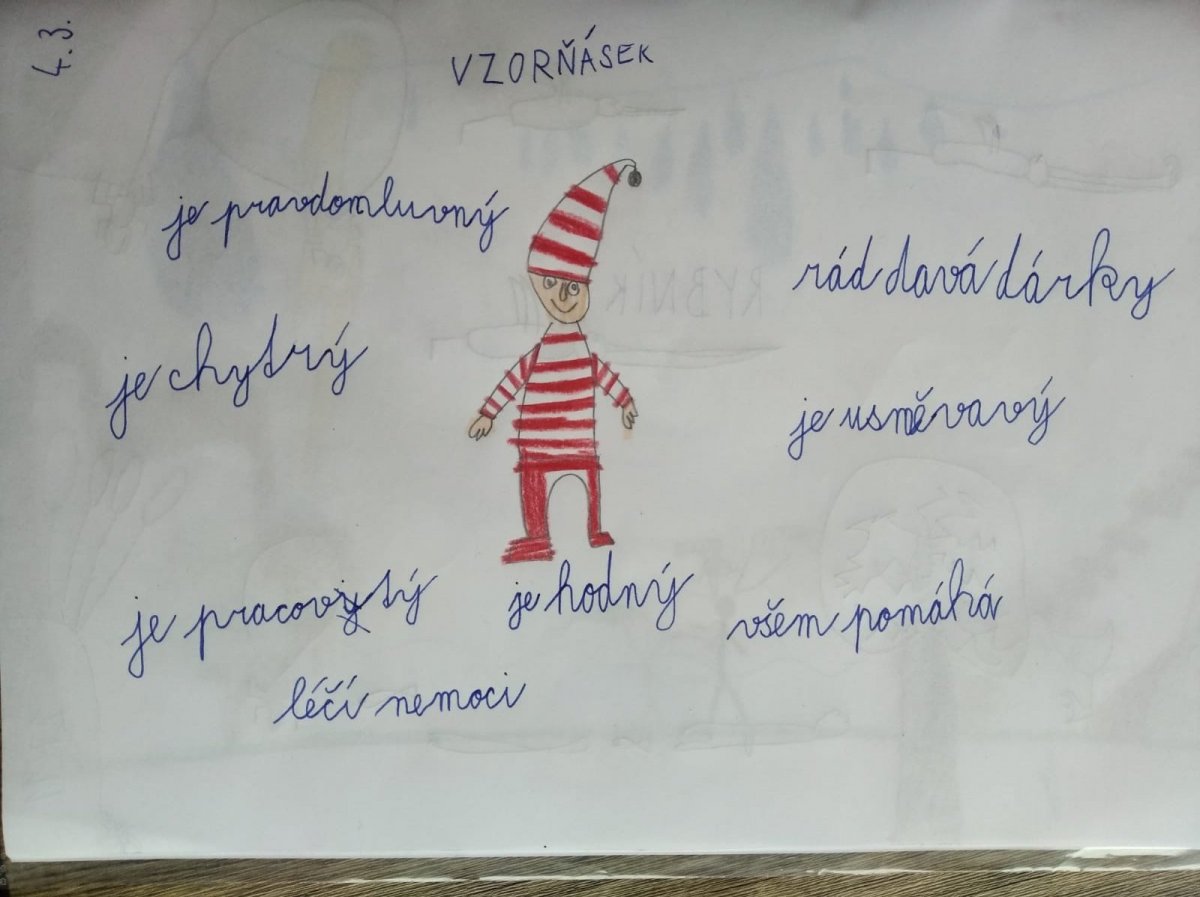 4.3.
VZORŇÁSEK
je pravdomluvný
rád davá dárky
je chytrý
je usměvavý
je pracovitý
je hodný
všem pomáhá
léčí nemoci
RYBNÍK